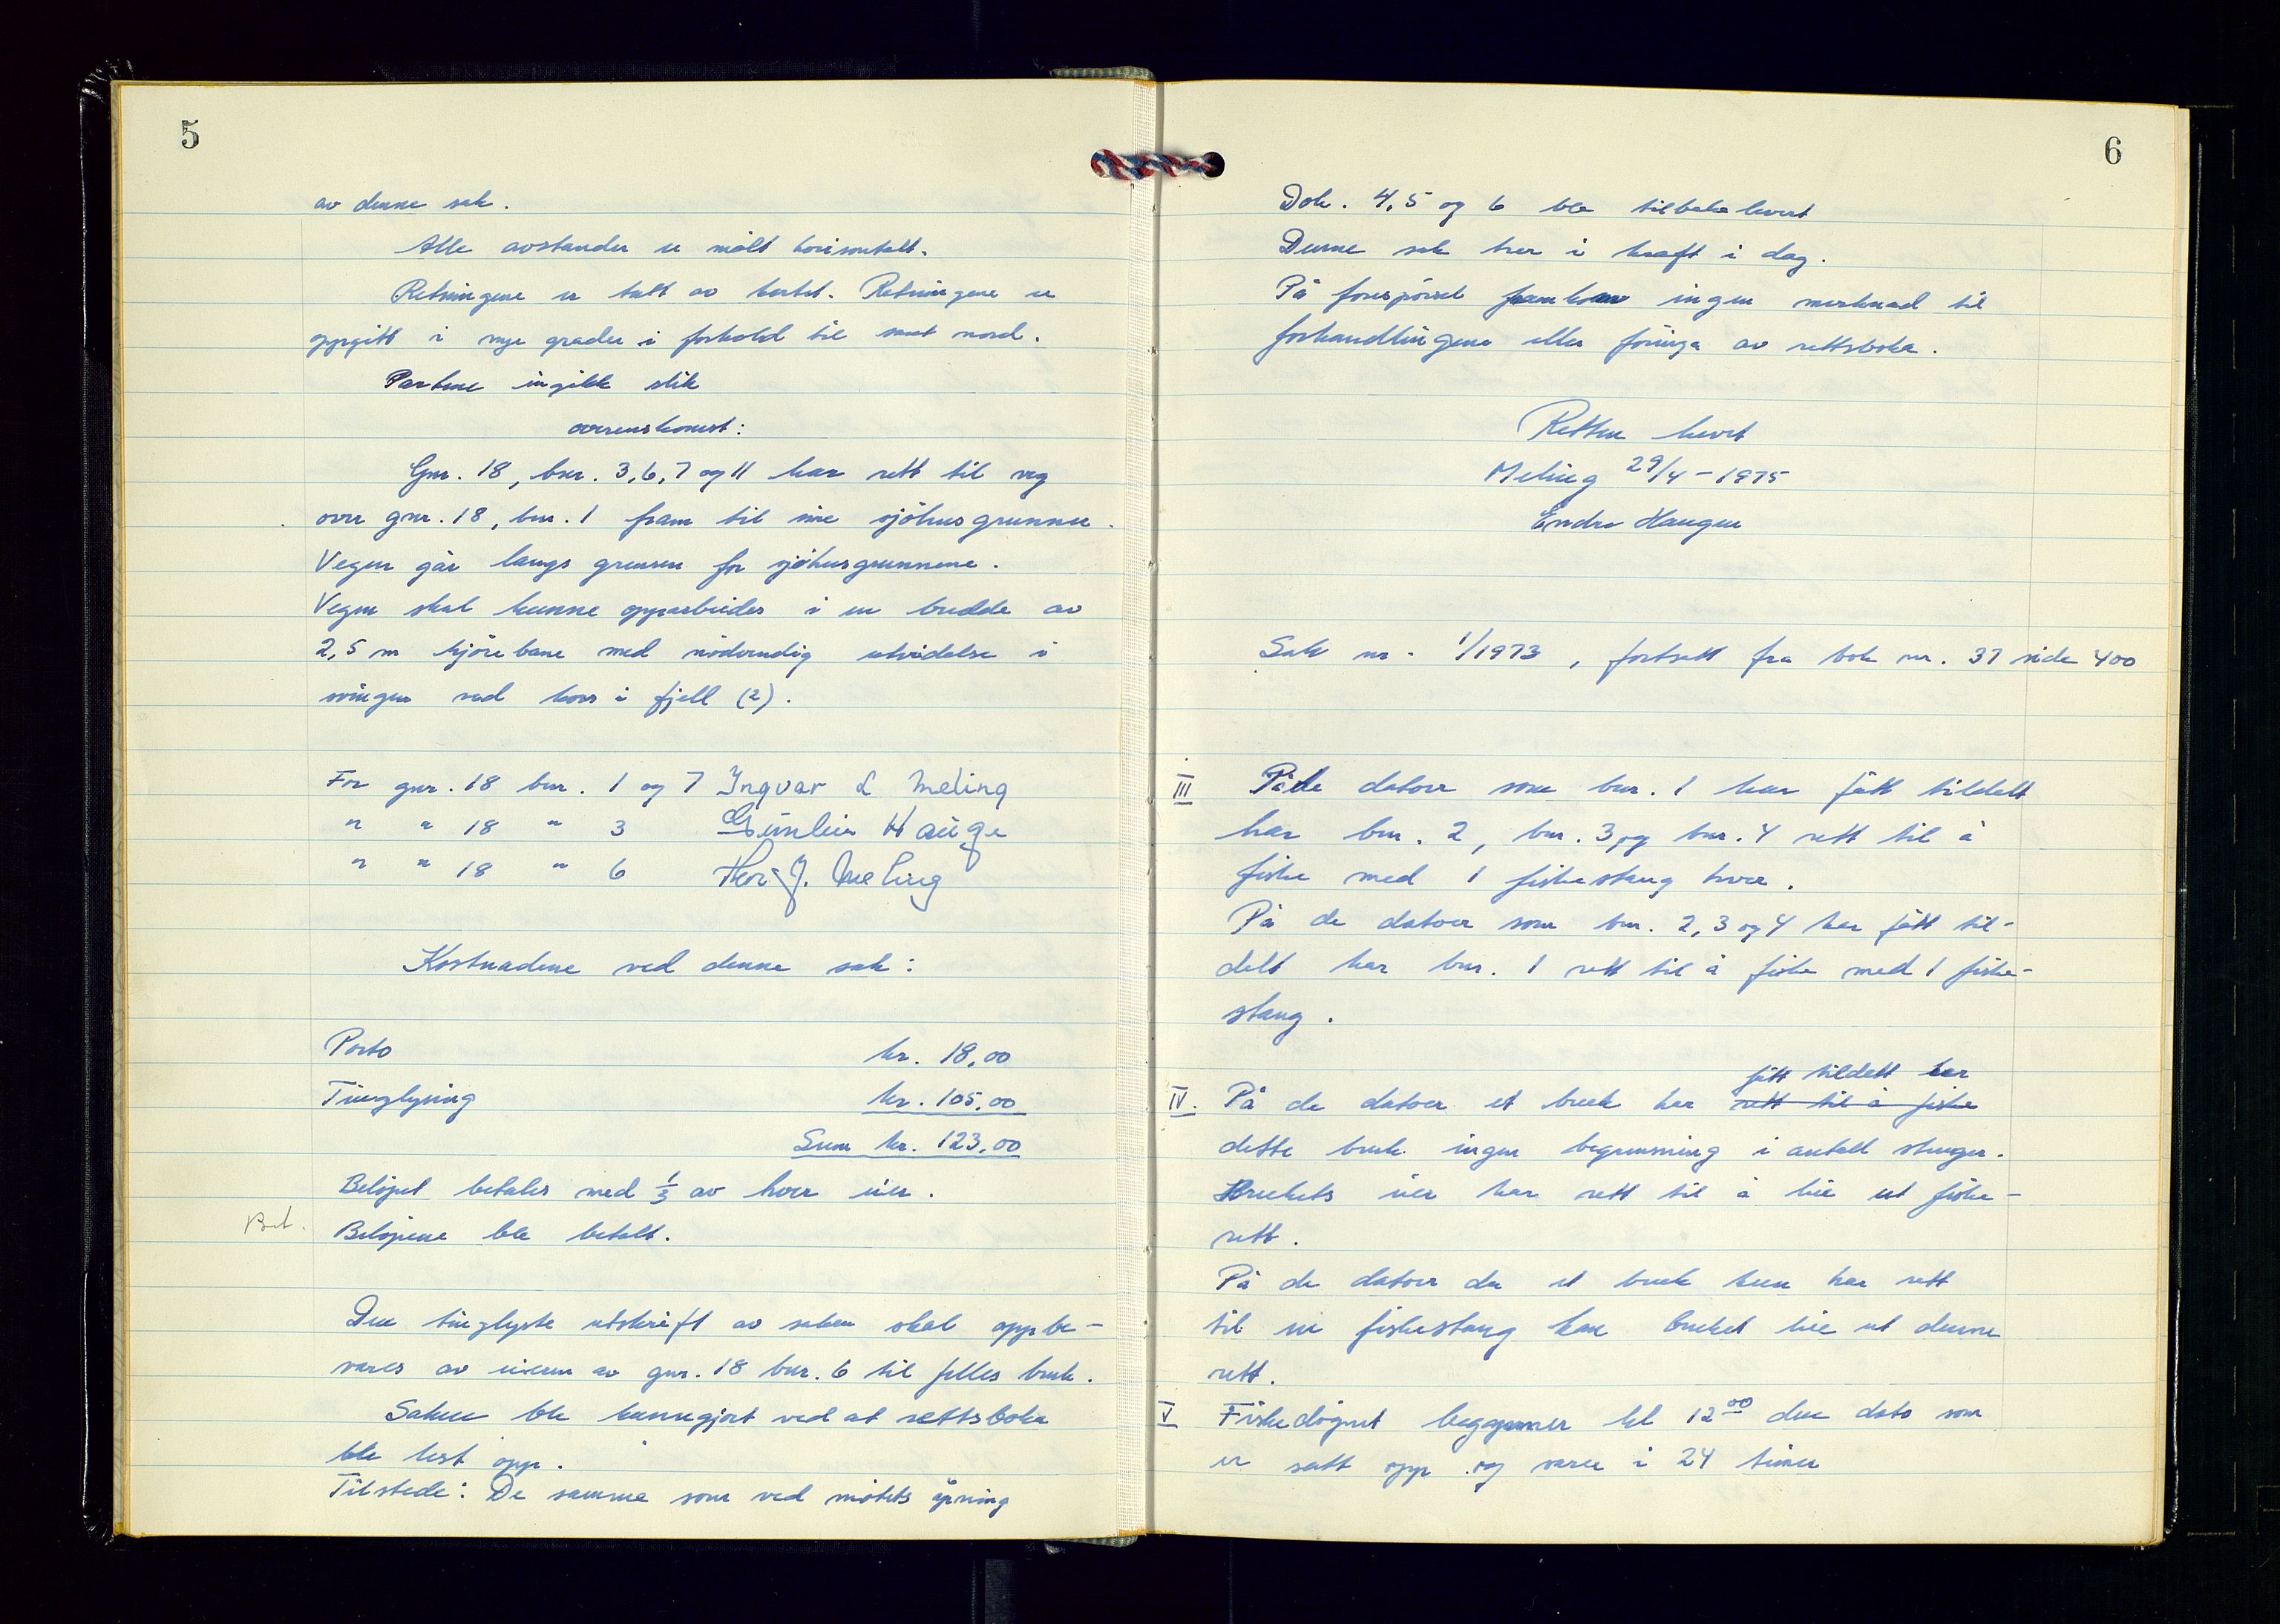 5
av denne sak.
Alle avstander er målt horisontalt.
Retningene er tatt av kartet. Retningene er
oppgitt i nye grader i forhold til sant nord.
Partene inngikk slik
overenskomst:
Gnr. 18, bnr. 3, 6, 7 og 11 har rett til veg
over gnr. 18, bnr. 1 fram til sine sjöhusgrunner.
Vegen går langs grensen for sjöhusgrunnene.
Vegen skal kunne opparbeides i en bredde av
2,5 m kjörebane med nödvendig utvidelse i
svingen ved kors i fjell (2).
For gnr. 18 bnr. 1 og 7 Ingvar L Meling
" " 18 " 3 Gunleiv Hauge
" " 18 " 6 Thor J. Meling
Kostnadene ved denne sak:
Porto kr. 18,00
Tinglysing kr. 105,00
Sum kr. 123,00
Belöpet betales med 1/3 av hver eier.
Bet.
Belöpene ble betalt.
Den tinglyste utskrift av saken skal oppbe-
vares av eieren av gnr. 18 bnr. 6 til felles bruk.
Saken ble kunngjort ved at rettsboka
ble lest opp.
Tilstede: De samme som ved mötets åpning
6
Dok. 4, 5 og 6 ble tilbakelevert
Denne sak trer i kraft i dag.
På forespörsel framkom ingen merknad til
forhandlingene eller föringa av rettsboka.
Retten hevet
Meling 29/4 - 1975
Endre Haugen
Sak nr. 1/1973, fortsatt fra bok nr. 37 side 400
III På de datoer som bnr. 1 har fått tildelt
har bnr. 2, bnr. 3 og bnr. 4 rett til å
fiske med 1 fiskestang hver.
På de datoer som bnr. 2, 3 og 4 har fått til-
delt har bnr. 1 rett til å fiske med 1 fiske-
stang.
fått tildelt har
IV. På de datoer et bruk har rett til å fiske
dette bruk ingen begrensning i antall stenger.
Brukets eier har rett til å leie ut fiske-
rett.
På de datoer da et bruk kun har rett
til en fiskestang kan bruket leie ut denne
rett.
V Fiskedögnet begynner kl 12 00 den dato som
er satt opp og varer i 24 timer